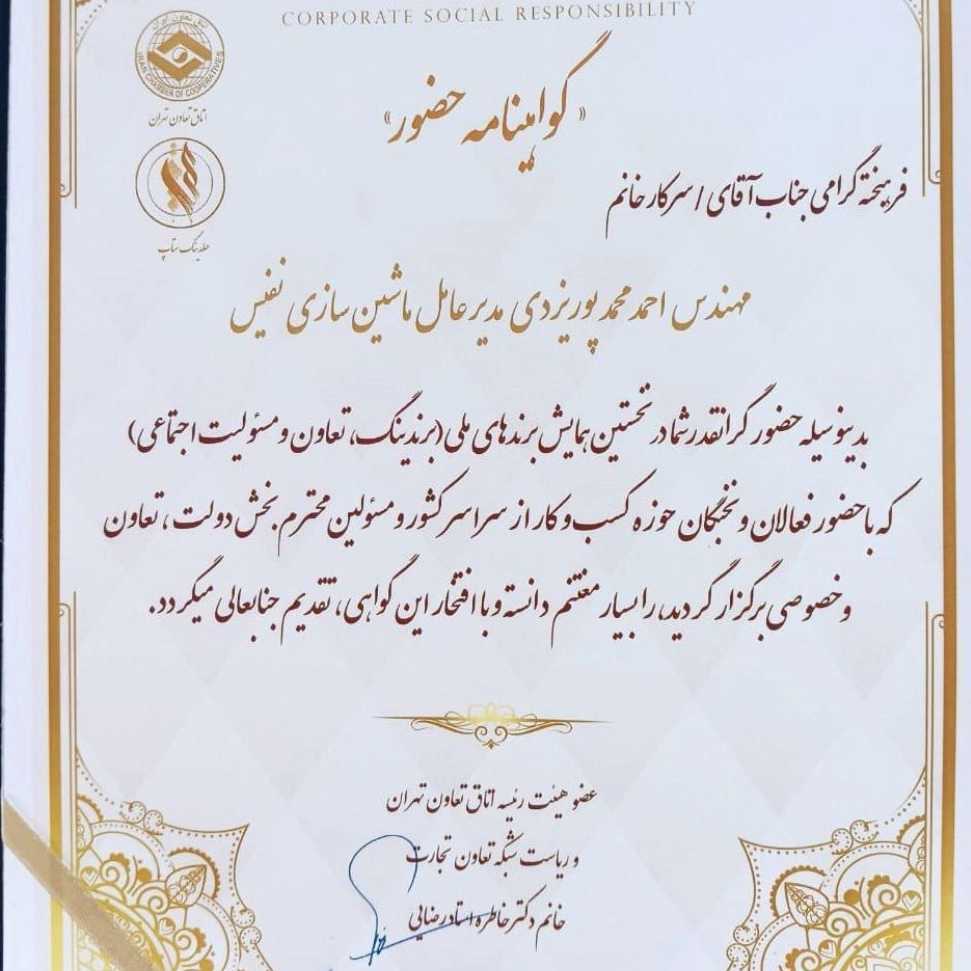 CORPORATE SOCIAL RESPONSIBILITY
IRAN CHAMBER OF COOPERATIVES
اتاق تعاون تهران
هلدینگ ستاپ
« گواهینامه حضور »
فرهیخته گرامی جناب آقای / سرکار خانم
مهندس احمد محمد پور یزدی مدیر عامل ماشین سازی نفیس
بدینوسیله حضور گرانقدر شما در نخستین همایش برندهای ملی (برندینگ، تعاون و مسئولیت اجتماعی)
که با حضور فعالان و نخبگان حوزه کسب و کار از سراسر کشور و مسئولین محترم بخش دولت، تعاون
و خصوصی برگزار گردید، را بسیار مغتنم دانسته و با افتخار این گواهی، تقدیم جنابعالی میگردد.
عضو هیئت رئیسه اتاق تعاون تهران
و ریاست شبکه تعاون تجارت
خانم دکتر خاطره استادرضایی